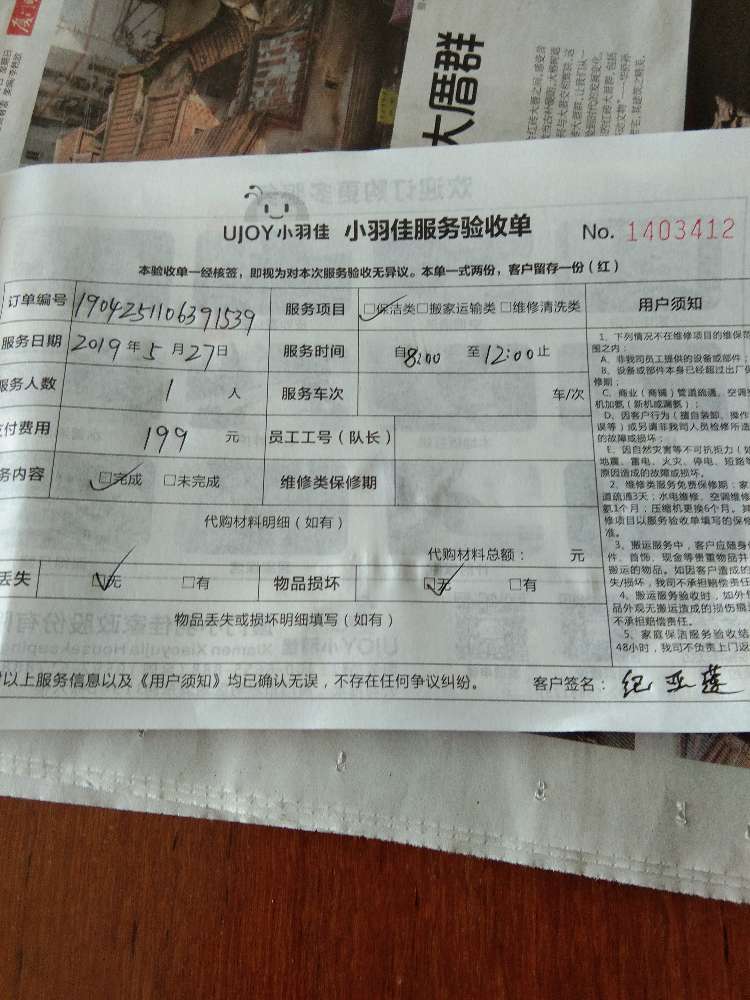 大厝群
UJOY小羽佳 小羽佳服务验收单 No. 1403412
本验收单一经核签，即视为对本次服务验收无异议。本单一式两份，客户留存一份（红）
订单编号 1904251106391539 服务项目 ☑保洁类□搬家运输类□维修清洗类 用户须知
服务日期 2019年5月27日 服务时间 自8:00 至12:00止
服务人数 1 人 服务车次 车/次
付费用 199 元 员工工号（队长）
务内容 ☑完成 □未完成 维修类保修期
代购材料明细（如有）
代购材料总额： 元
丢失 ☑无 □有 物品损坏 ☑无 □有
物品丢失或损坏明细填写（如有）
以上服务信息以及《用户须知》均已确认无误，不存在任何争议纠纷。 客户签名：纪亚莲
1、下列情况不在维修项目的维保范
围之内：
A、非我司员工提供的设备或部件；
B、设备或部件本身已经超过出厂保
修期；
C、商业（商铺）管道疏通、空调
机加氨（新机或漏氨）；
D、因客户行为（擅自装卸、操作
误等）或另请非我司人员检修所造
的故障或损坏；
E、因自然灾害等不可抗拒力（如
地震、雷电、火灾、停电、短路等
原因造成的故障或损坏。
2、维修类服务免费保修期：家
道疏通3天；水电维修、空调维修
氨1个月；压缩机更换6个月。其
修项目以服务验收单填写的保修
准。
3、搬运服务中，客户应随身
件、首饰、现金等贵重物品并
搬运的物品。如因客户造成的
失/损坏，我司不承担赔偿责任
4、搬运服务验收时，如外包
品外观无搬运造成的损伤痕
不承担赔偿责任。
5、家庭保洁服务验收结
48小时，我司不负责上门返